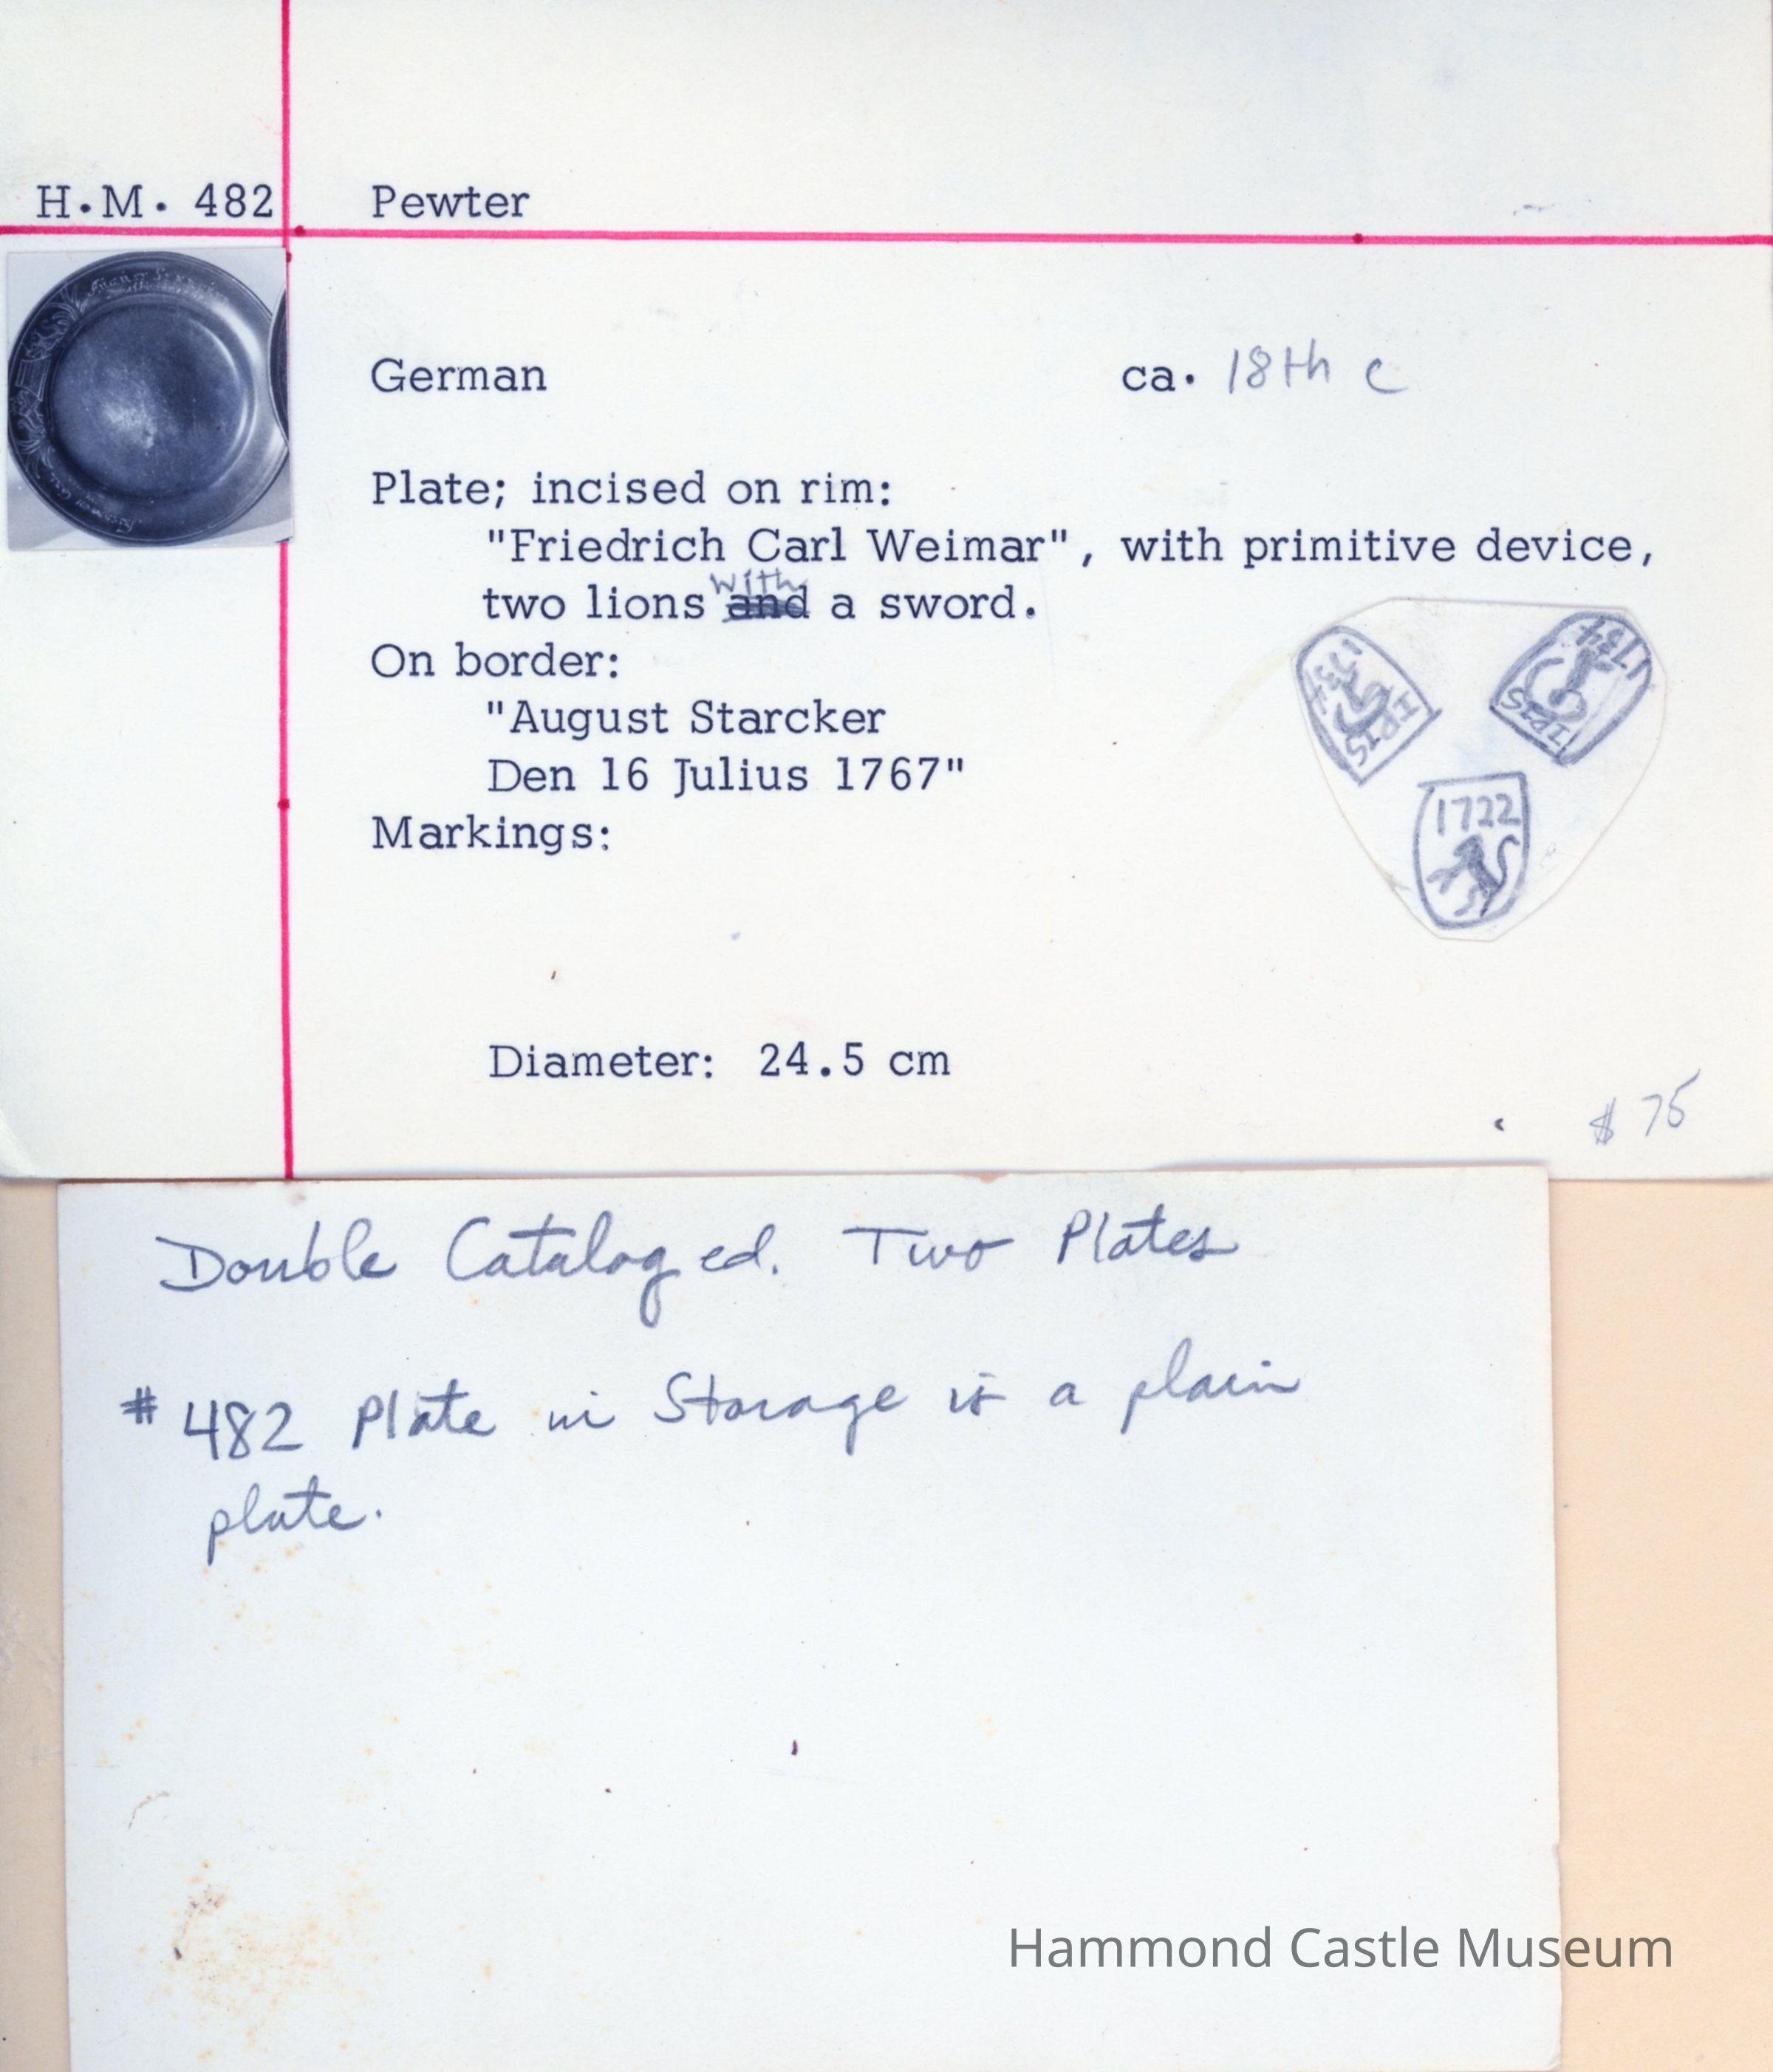 H.M. 482 Pewter
German ca. 18th c
Plate; incised on rim:
"Friedrich Carl Weimar", with primitive device,
with
two lions and a sword.
On border:
"August Starcker
Den 16 Julius 1767"
Markings:
1734
1734
1722
Diameter: 24.5 cm
$ 75
Double Cataloged. Two Plates
# 482 Plate in Storage is a plain
plate.
Hammond Castle Museum